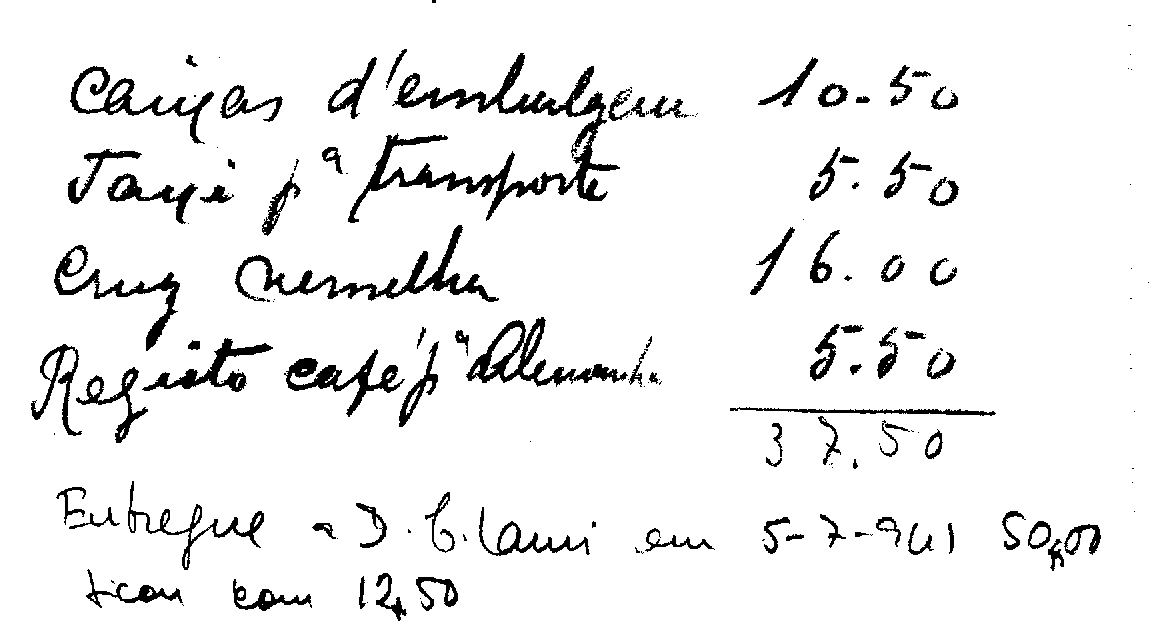 Caixas d'embalagem 10.50
Taxi pª transporte 5.50
Cruz Vermelha 16.00
Registo café pª Alemanha 5.50
37.50
Entregue a D. C. em 5-7-941 50,00
ficou com 12,50